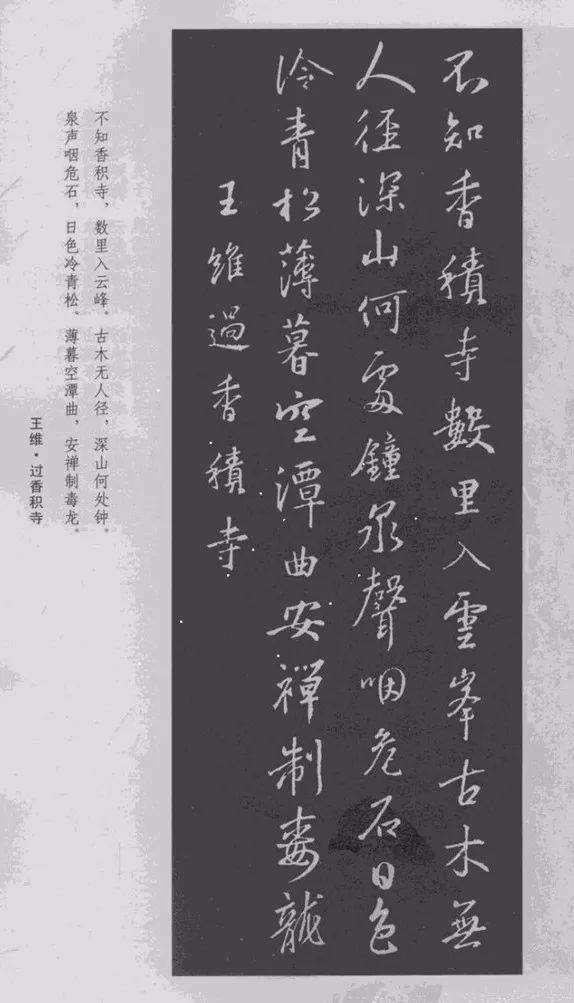 不知香積寺數里入雲峯古木無
人徑深山何處鐘泉聲咽危石日色
冷青松薄暮空潭曲安禪制毒龍
王維過香積寺
不知香积寺，数里入云峰。古木无人径，深山何处钟。
泉声咽危石，日色冷青松。薄暮空潭曲，安禅制毒龙。
王维·过香积寺